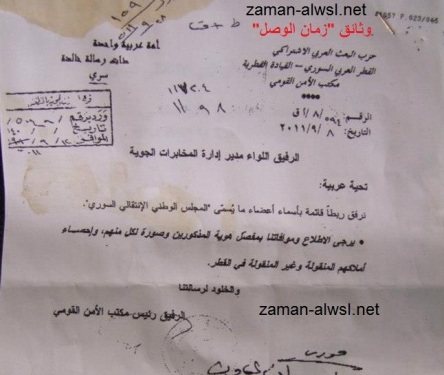 zaman-alwsl.net
وثائق "زمان الوصل"
P.623/646
أمة عربية واحدة
ذات رسالة خالدة
سري
حزب البعث العربي الاشتراكي
القطر العربي السوري – القيادة القطرية
مكتب الأمن القومي
zaman-alwsl.net
الرقم:
التاريخ: ٢٠١١/٩/٨
الرفيق اللواء مدير إدارة المخابرات الجوية
تحية عربية:
نرفق ربطاً قائمة بأسماء أعضاء ما يُسمّى "المجلس الوطني الإنتقالي السوري".
• يرجى الاطلاع وموافاتنا بمفصل هوية المذكورين وصورة لكل منهم، وإحصاء
أملاكهم المنقولة وغير المنقولة في القطر.
والخلود لرسالتنا
zaman-alwsl.net
الرفيق رئيس مكتب الأمن القومي